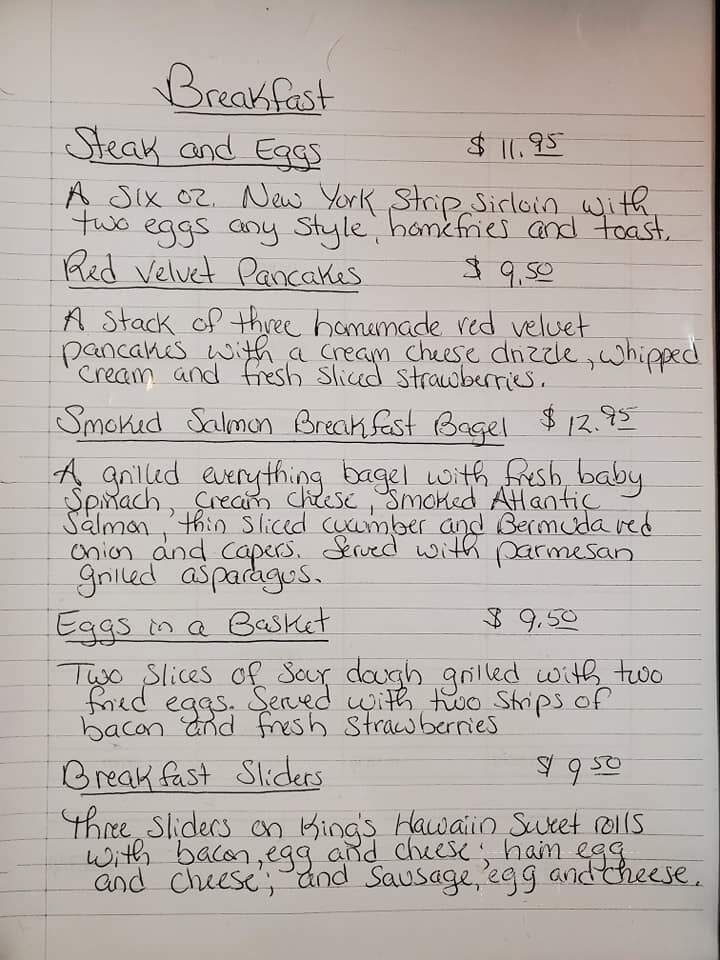 Breakfast
Steak and Eggs $ 11.95
A six oz. New York Strip Sirloin with
two eggs any style, homefries and toast.
Red Velvet Pancakes $ 9.50
A Stack of three homemade red velvet
pancakes with a cream cheese drizzle, whipped
cream and fresh sliced strawberries.
Smoked Salmon Breakfast Bagel $ 12.95
A grilled everything bagel with fresh baby
Spinach, cream cheese, smoked Atlantic
Salmon, thin sliced cucumber and Bermuda red
onion and capers. Served with parmesan
grilled asparagus.
Eggs in a Basket $ 9.50
Two Slices of Sour dough grilled with two
fried eggs. Served with two strips of
bacon and fresh strawberries
Breakfast Sliders $ 9 50
Three Sliders on King's Hawaiin Sweet rolls
with bacon, egg and cheese; ham egg
and cheese; and Sausage, egg and cheese.